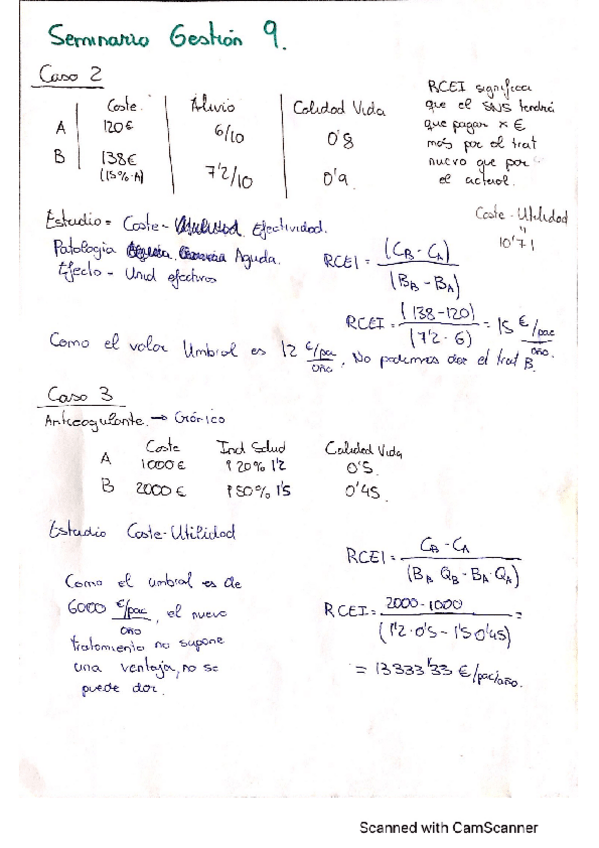 Seminario Gestión 9.
Caso 2
Coste. Alivio Calidad Vida
A 120€ 6/10 0'8
B 138€ 7'2/10 0'9
(15%·A)
RCEI significa
que el SNS tendrá
que pagar x €
más por el trat
nuevo que por
el actual.
Coste-Utilidad
"
10'71
Estudio = Coste- Efectividad.
Patología Aguda.
Efecto - Unid efectivos
RCEI = (CB - CA) / (BB - BA)
RCEI = (138-120) / (7'2 - 6) = 15 €/pac/año.
Como el valor Umbral es 12 €/pac/año, No podemos dar el trat B.
Caso 3
Anticoagulante. → Crónico
Coste Ind Salud Calidad Vida
A 1000€ ↑20% 1'2 0'5.
B 2000€ ↑50% 1'5 0'45
Estudio Coste-Utilidad
RCEI = CB - CA / (BB QB - BA·QA)
Como el umbral es de
6000 €/pac/año, el nuevo
tratamiento no supone
una ventaja, no se
puede dar.
RCEI = 2000-1000 / (1'2·0'5 - 1'5·0'45) =
= 13333'33 €/pac/año.
Scanned with CamScanner